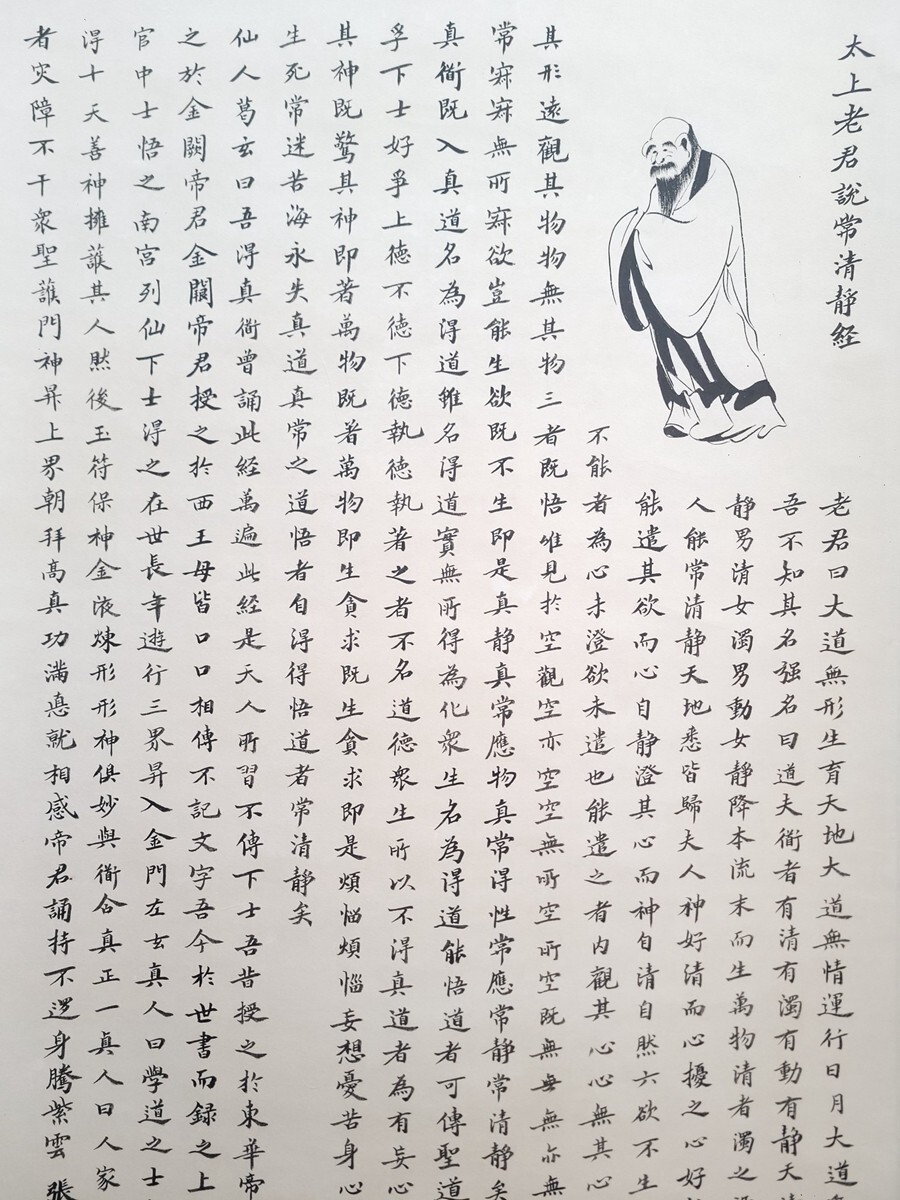 太上老君說常清靜経
老君曰大道無形生育天地大道無情運行日月大道
吾不知其名强名曰道夫衜者有清有濁有動有静天
静男清女濁男動女静降本流末而生萬物清者濁之
人能常清静天地悉皆歸夫人神好清而心擾之心好
能遣其欲而心自静澄其心而神自清自然六欲不生
不能者為心未澄欲未遣也能遣之者内觀其心心無其心
其形遠觀其物物無其物三者既悟唯見於空觀空亦空空無所空所空既無無無亦無
常寂寂無所寂欲豈能生欲既不生即是真静真常應物真常得性常應常静常清静矣
真衜既入真道名為得道雖名得道實無所得為化衆生名為得道能悟道者可傳聖道
孚下士好爭上德不德下德執德執著之者不名道德衆生所以不得真道者為有妄心
其神既驚其神即著萬物既著萬物即生貪求既生貪求即是煩惱煩惱妄想憂苦身心
生死常迷苦海永失真道真常之道悟者自得得悟道者常清静矣
仙人葛玄曰吾得真衜曾誦此經萬遍此經是天人所習不傳下士吾昔授之於東華帝
之於金闕帝君金闕帝君授之於西王母皆口口相傳不記文字吾今於世書而録之上
官中士悟之南宮列仙下士得之在世長年遊行三界昇入金門左玄真人曰學道之士
得十天善神擁護其人然後玉符保神金液煉形形神俱妙與衜合真正一真人曰人家
者灾障不干衆聖護門神昇上界朝拜高真功滿悳就相感帝君誦持不退身騰紫雲張